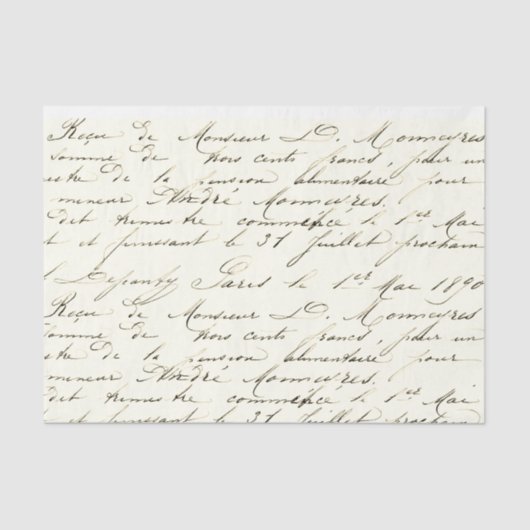 Reçu de Monsieur D. Monnceyres
somme de trois cents francs, pour un
stre de la pension alimentaire pour
mineur André Monnceyres.
dit trimestre commence le 1er Mai
t et finissant le 31 Juillet prochain
Paris le 1er Mai 1890
Reçu de Monsieur D. Monnceyres
somme de trois cents francs, pour un
stre de la pension alimentaire pour
mineur André Monnceyres.
dit trimestre commence le 1er Mai
t et finissant le 31 Juillet prochain